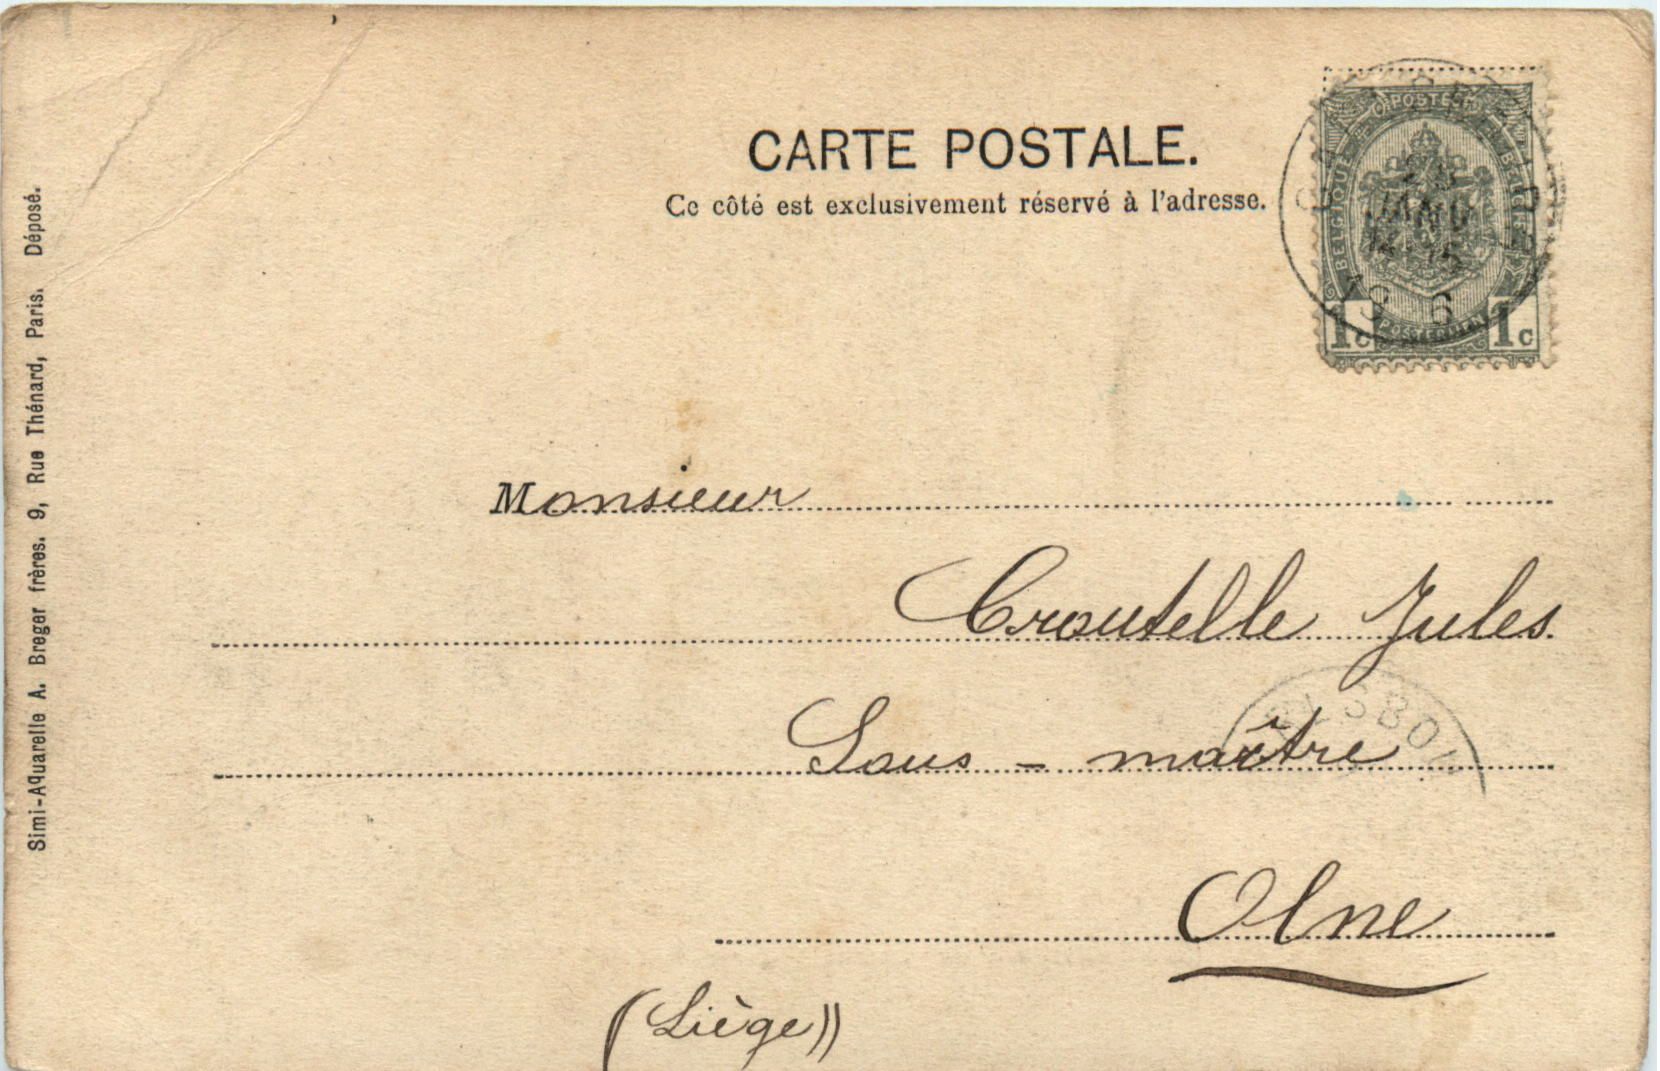 CARTE POSTALE.
Ce côté est exclusivement réservé à l'adresse.
POSTES
BELGIQUE
POSTERIJEN
1c 1c
JANV
19 6
Monsieur
Croutelle Jules
Sous - maître
Olne
(Liège))
Simi-Aquarelle A. Breger frères. 9, Rue Thénard, Paris. Déposé.